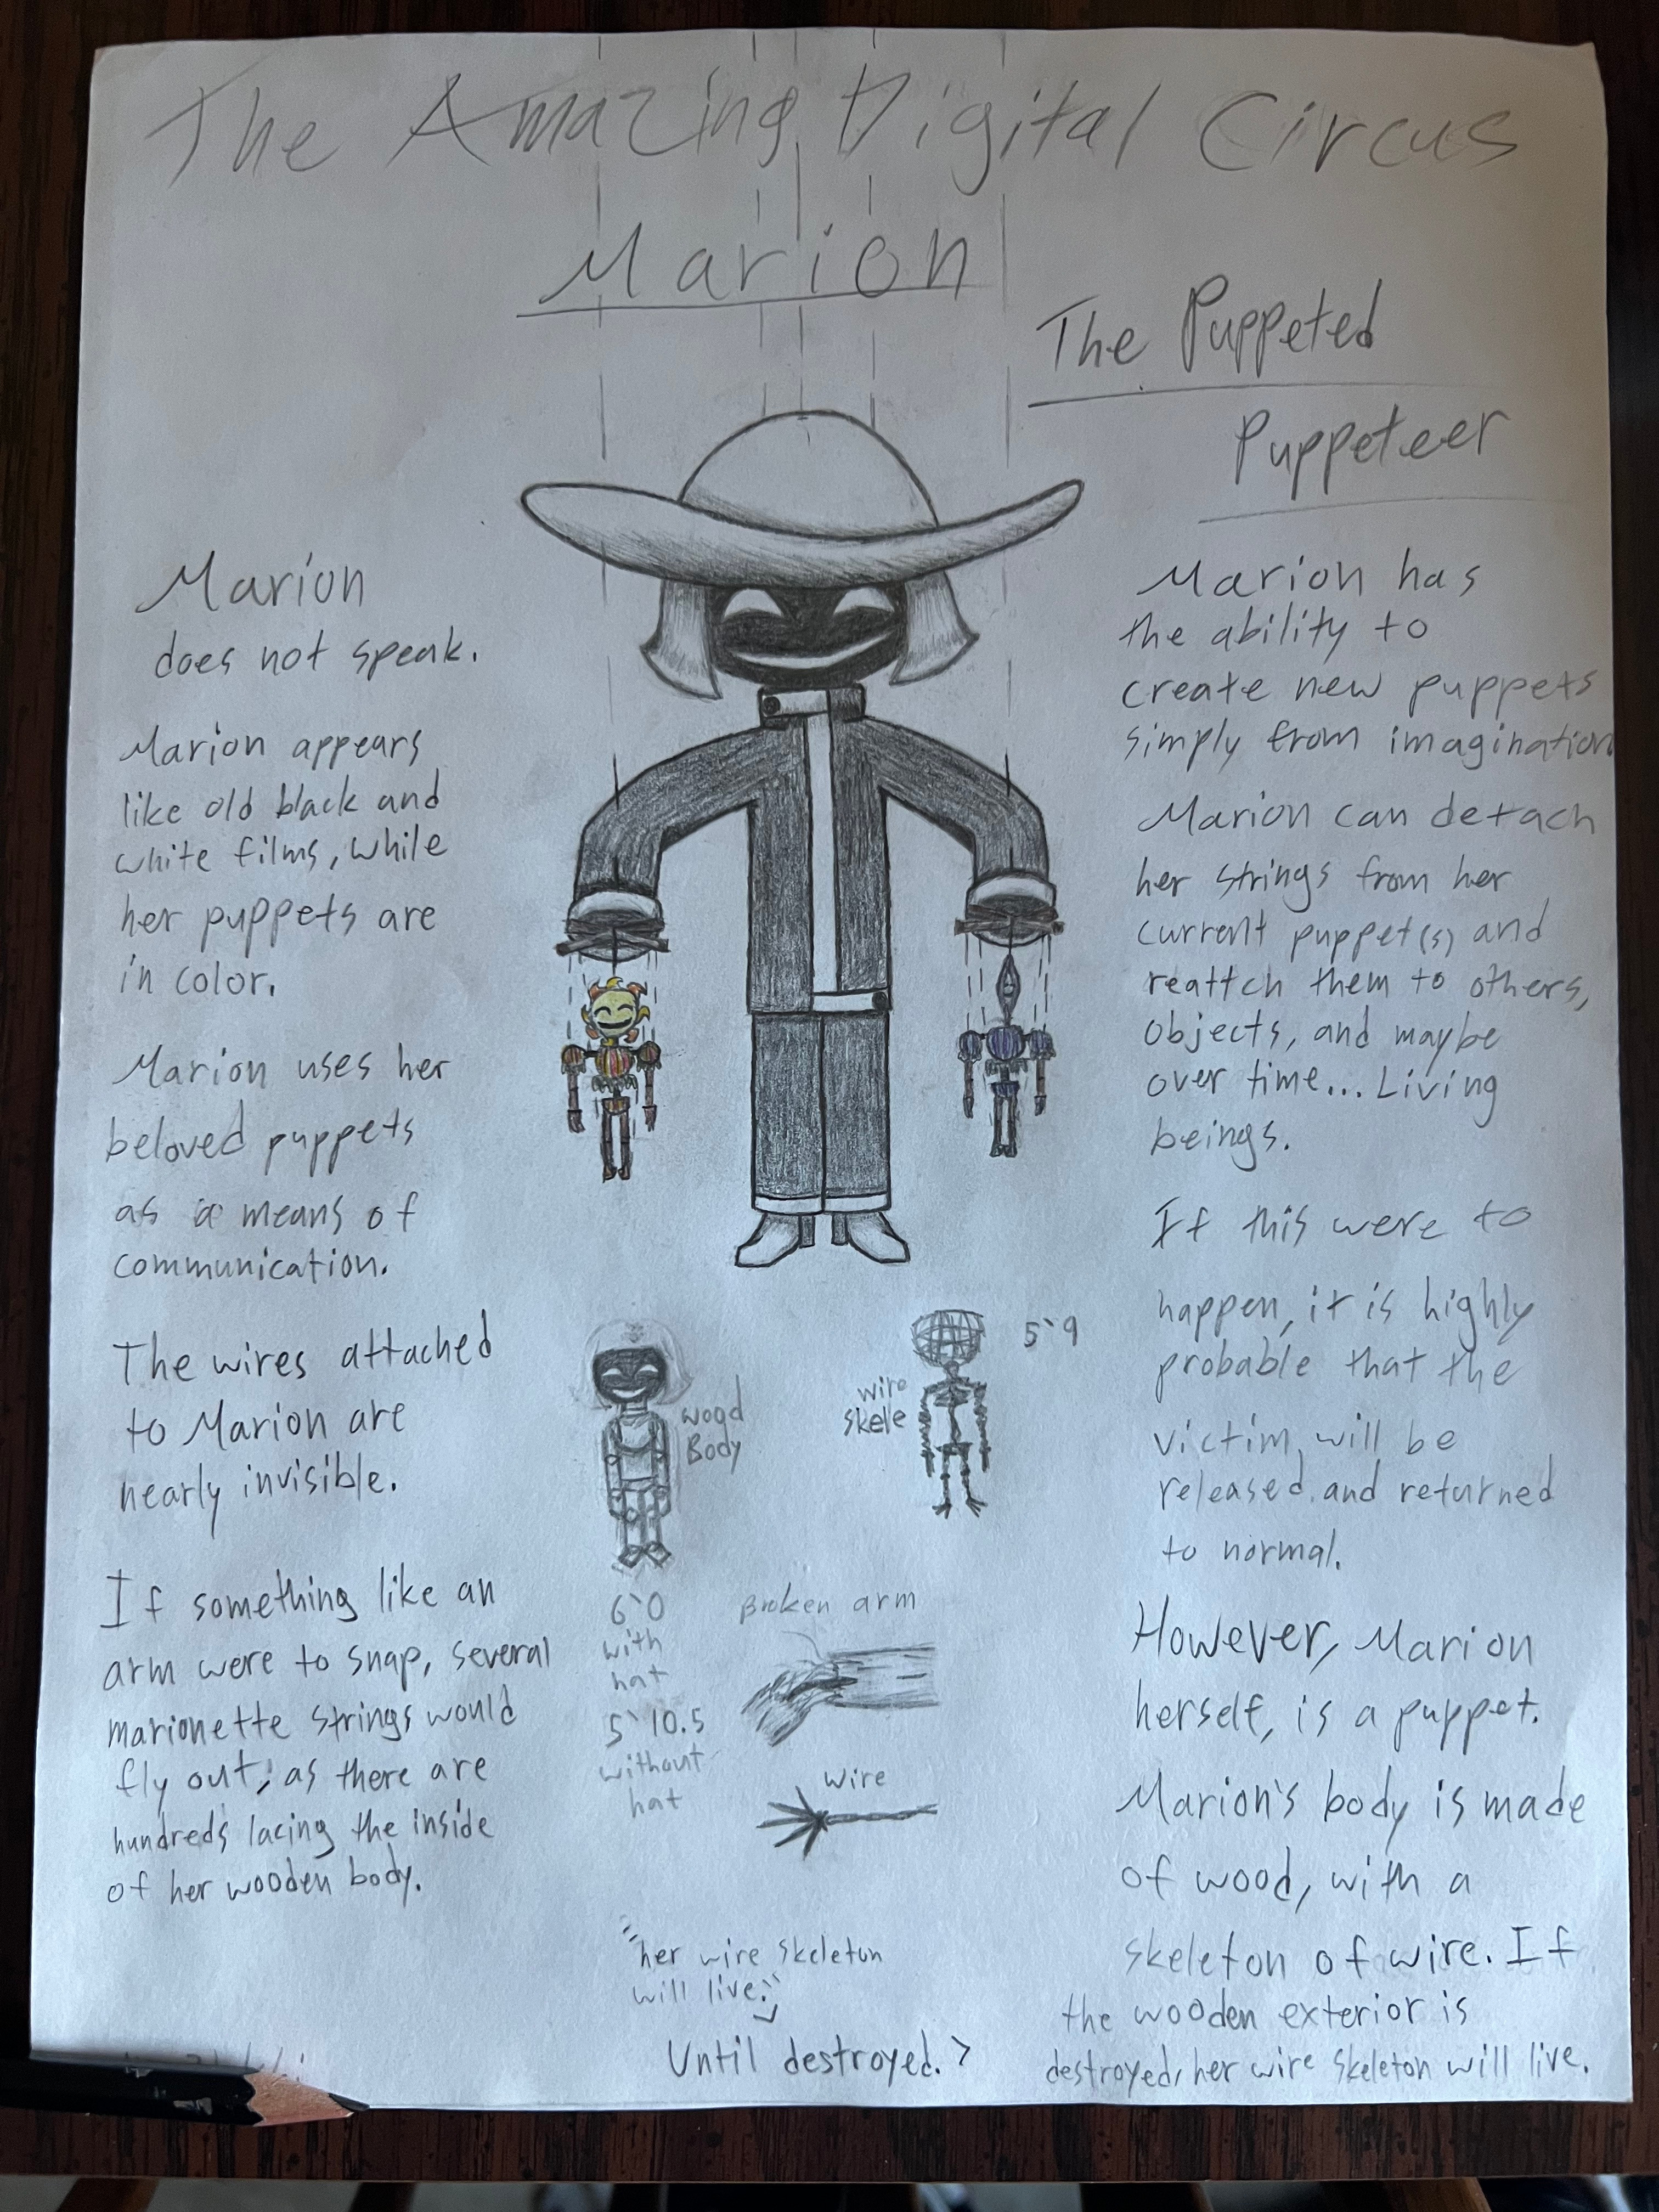 The Amazing Digital Circus
Marion
The Puppeted
Puppeteer
Marion
does not speak.
Marion appears
like old black and
white films, while
her puppets are
in color.
Marion uses her
beloved puppets
as a means of
communication.
The wires attached
to Marion are
nearly invisible.
If something like an
arm were to snap, several
marionette strings would
fly out, as there are
hundreds lacing the inside
of her wooden body.
Marion has
the ability to
create new puppets
simply from imagination
Marion can detach
her strings from her
current puppet(s) and
reattch them to others,
objects, and maybe
over time... Living
beings.
If this were to
happen, it is highly
probable that the
victim will be
released and returned
to normal.
However, Marion
herself, is a puppet.
Marion's body is made
of wood, with a
skeleton of wire. If
the wooden exterior is
destroyed, her wire skeleton will live.
wood
Body
6`0
with
hat
5`10.5
without
hat
wire
skele
5`9
Broken arm
wire
"her wire skeleton
will live."
Until destroyed. >